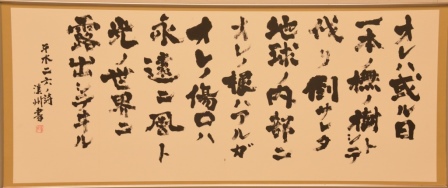 オレハ或ル日
一本ノ橅ノ樹トシテ
伐リ倒サレタ
地球ノ内部ニ
オレノ根ハアルガ
オレノ傷口ハ
永遠ニ風ト
光ノ世界ニ
露出シテヰル
平木二六ノ詩
州書